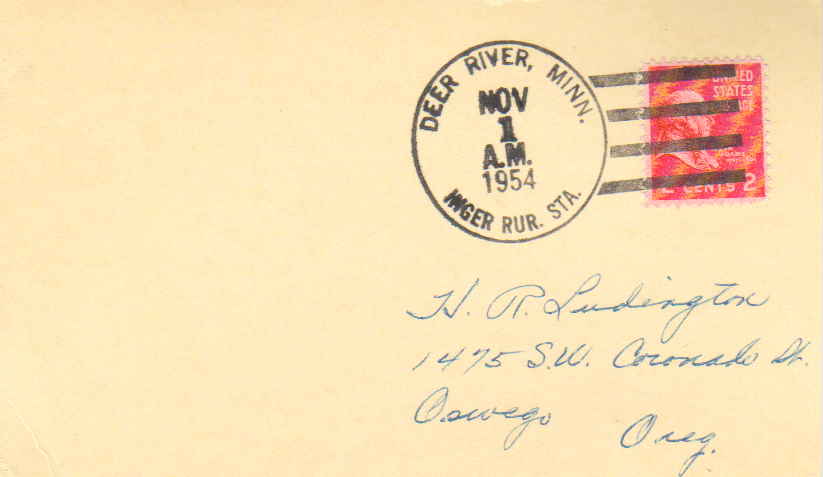 DEER RIVER, MINN.
NOV
1
A.M.
1954
INGER RUR. STA.
UNITED
STATES
2 CENTS 2
H. R. Ludington
1475 S.W. Coronado St.
Oswego
Oreg.